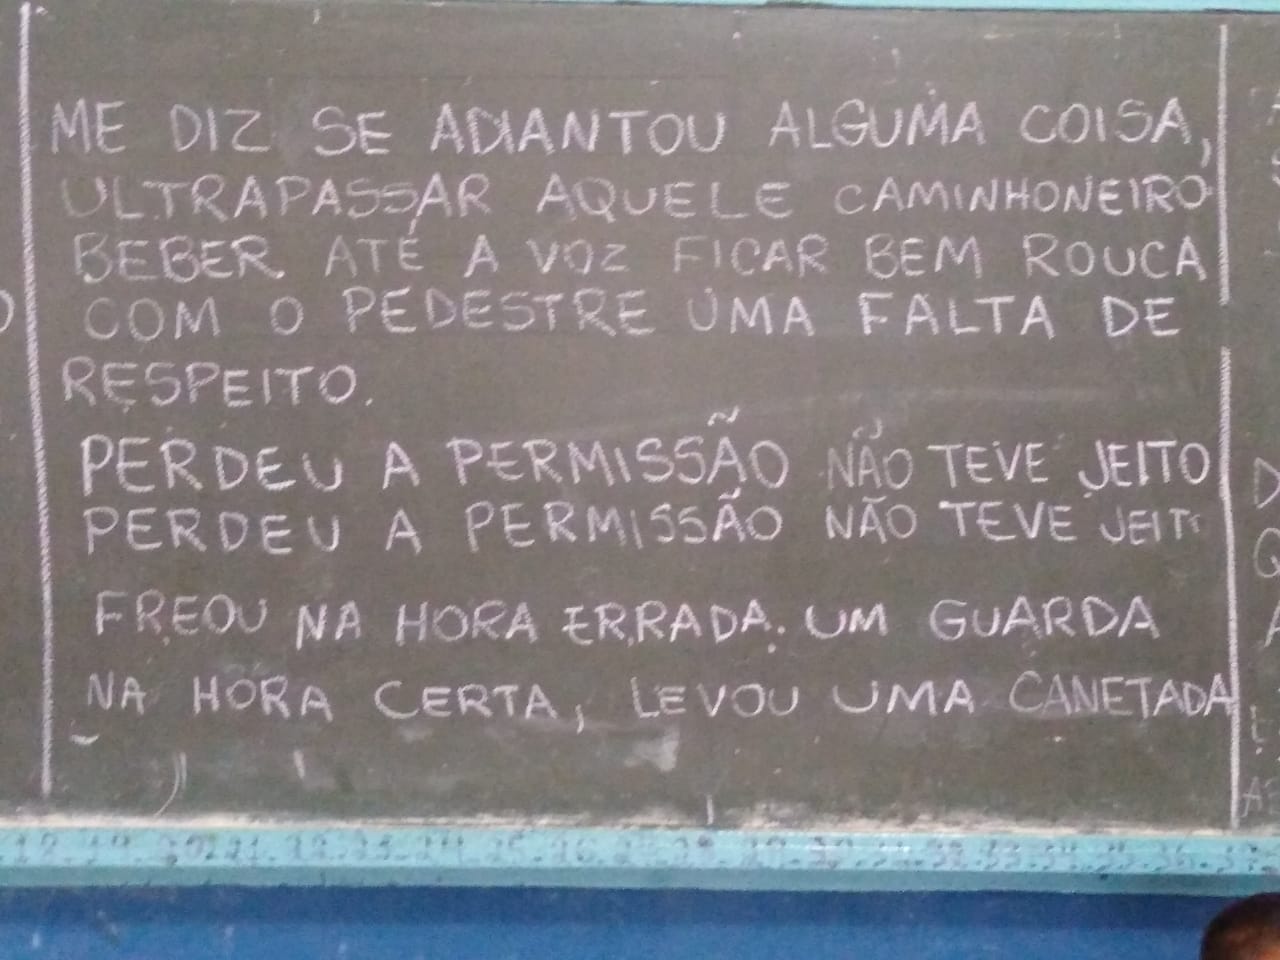 ME DIZ SE ADIANTOU ALGUMA COISA,
ULTRAPASSAR AQUELE CAMINHONEIRO
BEBER ATÉ A VOZ FICAR BEM ROUCA
COM O PEDESTRE UMA FALTA DE
RESPEITO.
PERDEU A PERMISSÃO NÃO TEVE JEITO
PERDEU A PERMISSÃO NÃO TEVE JEITO
FREOU NA HORA ERRADA. UM GUARDA
NA HORA CERTA, LEVOU UMA CANETADA